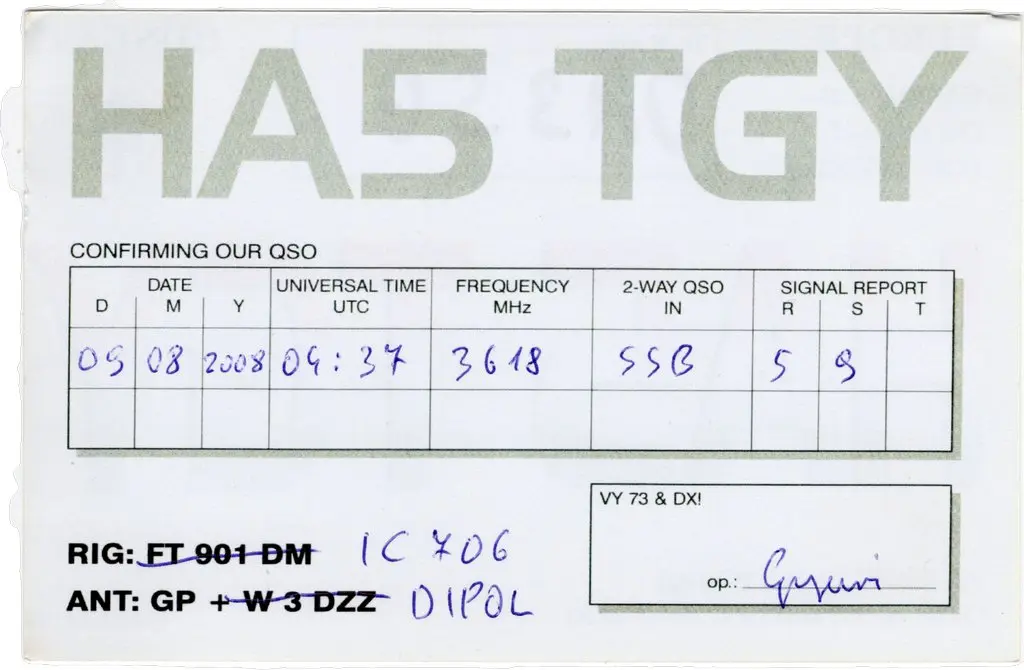 HA5 TGY
CONFIRMING OUR QSO
DATE UNIVERSAL TIME FREQUENCY 2-WAY QSO SIGNAL REPORT
D M Y UTC MHz IN R S T
09 08 2008 04:37 3618 SSB 5 9
VY 73 & DX!
RIG: FT 901 DM IC 706
op.: Gyuri
ANT: GP + W 3 DZZ DIPOL